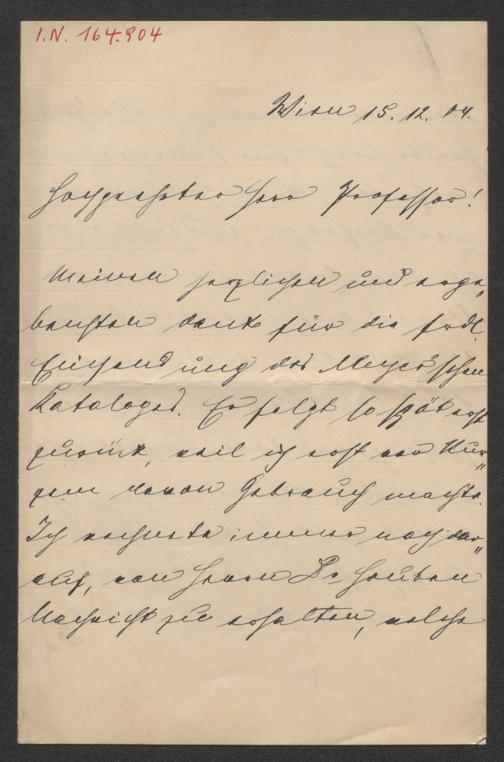 I.N. 164.904
Wien 15. 12. 04.
Hochgeehrter Herr Professor!
Meinen herzlichen und erge„
bensten Dank für die frdl.
Einsendung des Meyer'schen
Kataloges. Er folgt so spät erst
zurück, weil ich erst vor Kur„
zem davon Gebrauch machte.
Ich rechnete immer noch dar„
auf, von Herrn Dr Houben
Nachricht zu erhalten, welche